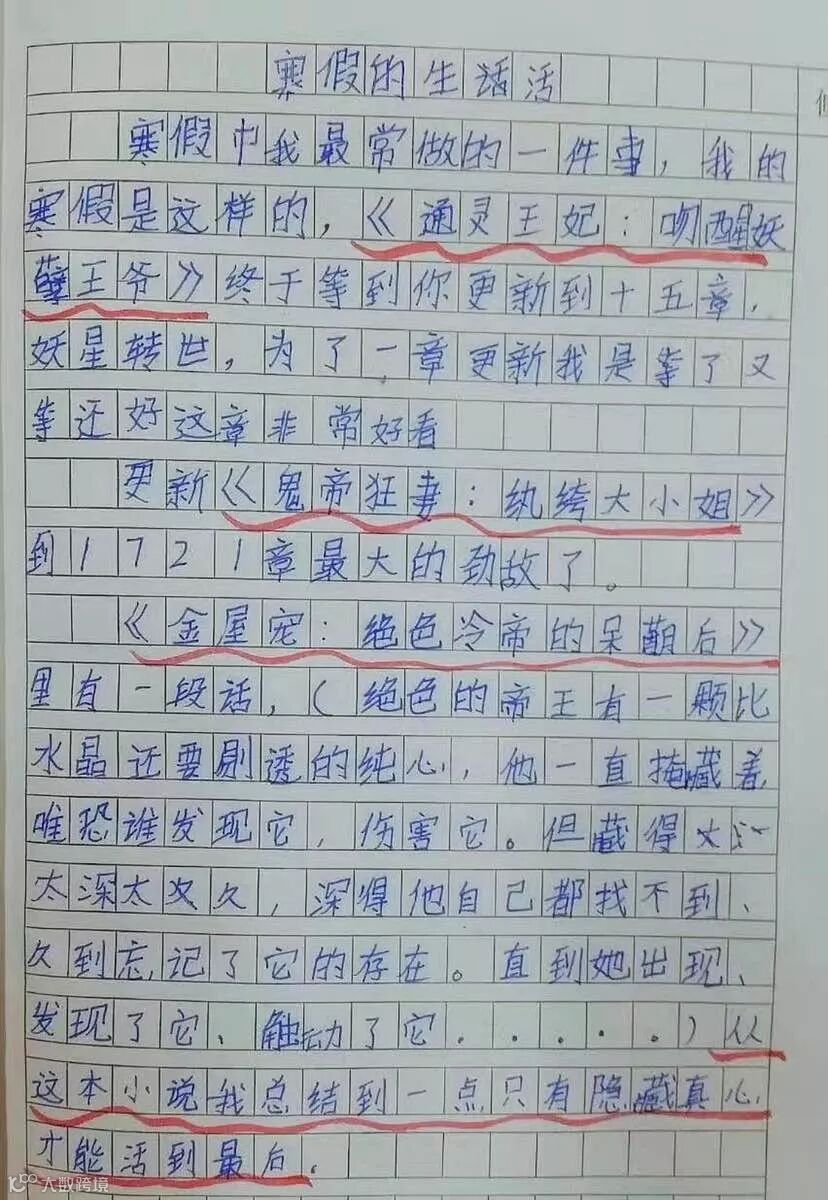 寒假的生话活
寒假中我最常做的一件事，我的
寒假是这样的，《通灵王妃：吻醒妖
孽王爷》终于等到你更新到十五章.
妖星转世，为了一章更新我是等了又
等还好这章非常好看
更新《鬼帝狂妻：纨绔大小姐》
到1721章最大的劲敌了。
《金屋宠：绝色冷帝的呆萌后》
里有一段话，（绝色的帝王有一颗比
水晶还要剔透的纯心，他一直掩藏着
唯恐谁发现它，伤害它。但藏得太
太深太久，深得他自己都找不到、
久到忘记了它的存在。直到她出现、
发现了它、触动了它.....）从
这本小说我总结到一点只有隐藏真心
才能活到最后.
大数跨境